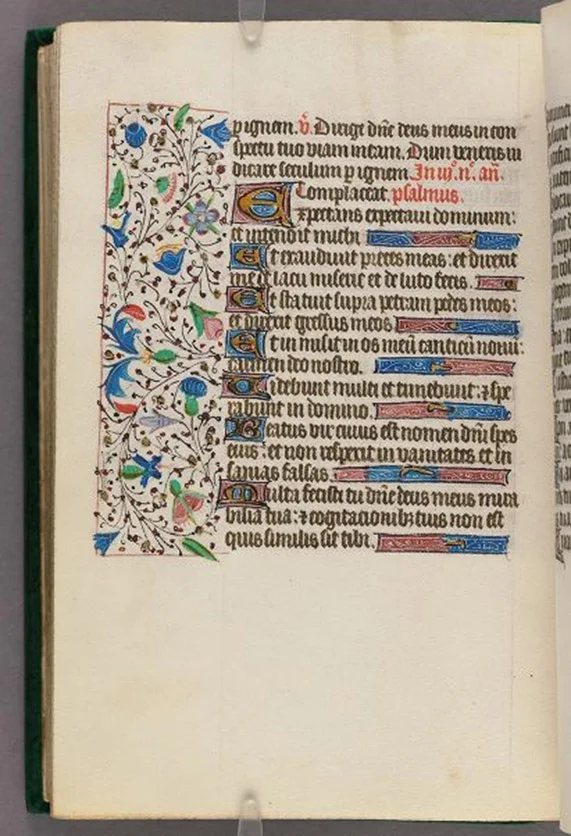 p ignem. v̊. Dirige dñe deus meus in con
spectu tuo viam meam. Dum veneris iu
dicare seculum p ignem. In iijº. nº. añ.
Complaceat. psalmus.
Expectans expectaui dominum:
et intendit michi
Et exaudiuit preces meas: et eduxit
me de lacu miserie et de luto fecis.
Et statuit supra petram pedes meos:
et direxit gressus meos
Et in misit in os meū canticū nouū:
carmen deo nostro.
Uidebunt multi et timebunt: ⁊ spe
rabunt in domino.
Beatus vir cuius est nomen dñi spes
eius: et non respexit in vanitates et in
sanias falsas.
Multa fecisti tu dñe deus meus mira
bilia tua: ⁊ cogitacionibꝫ tuis non est
quis similis sit tibi.